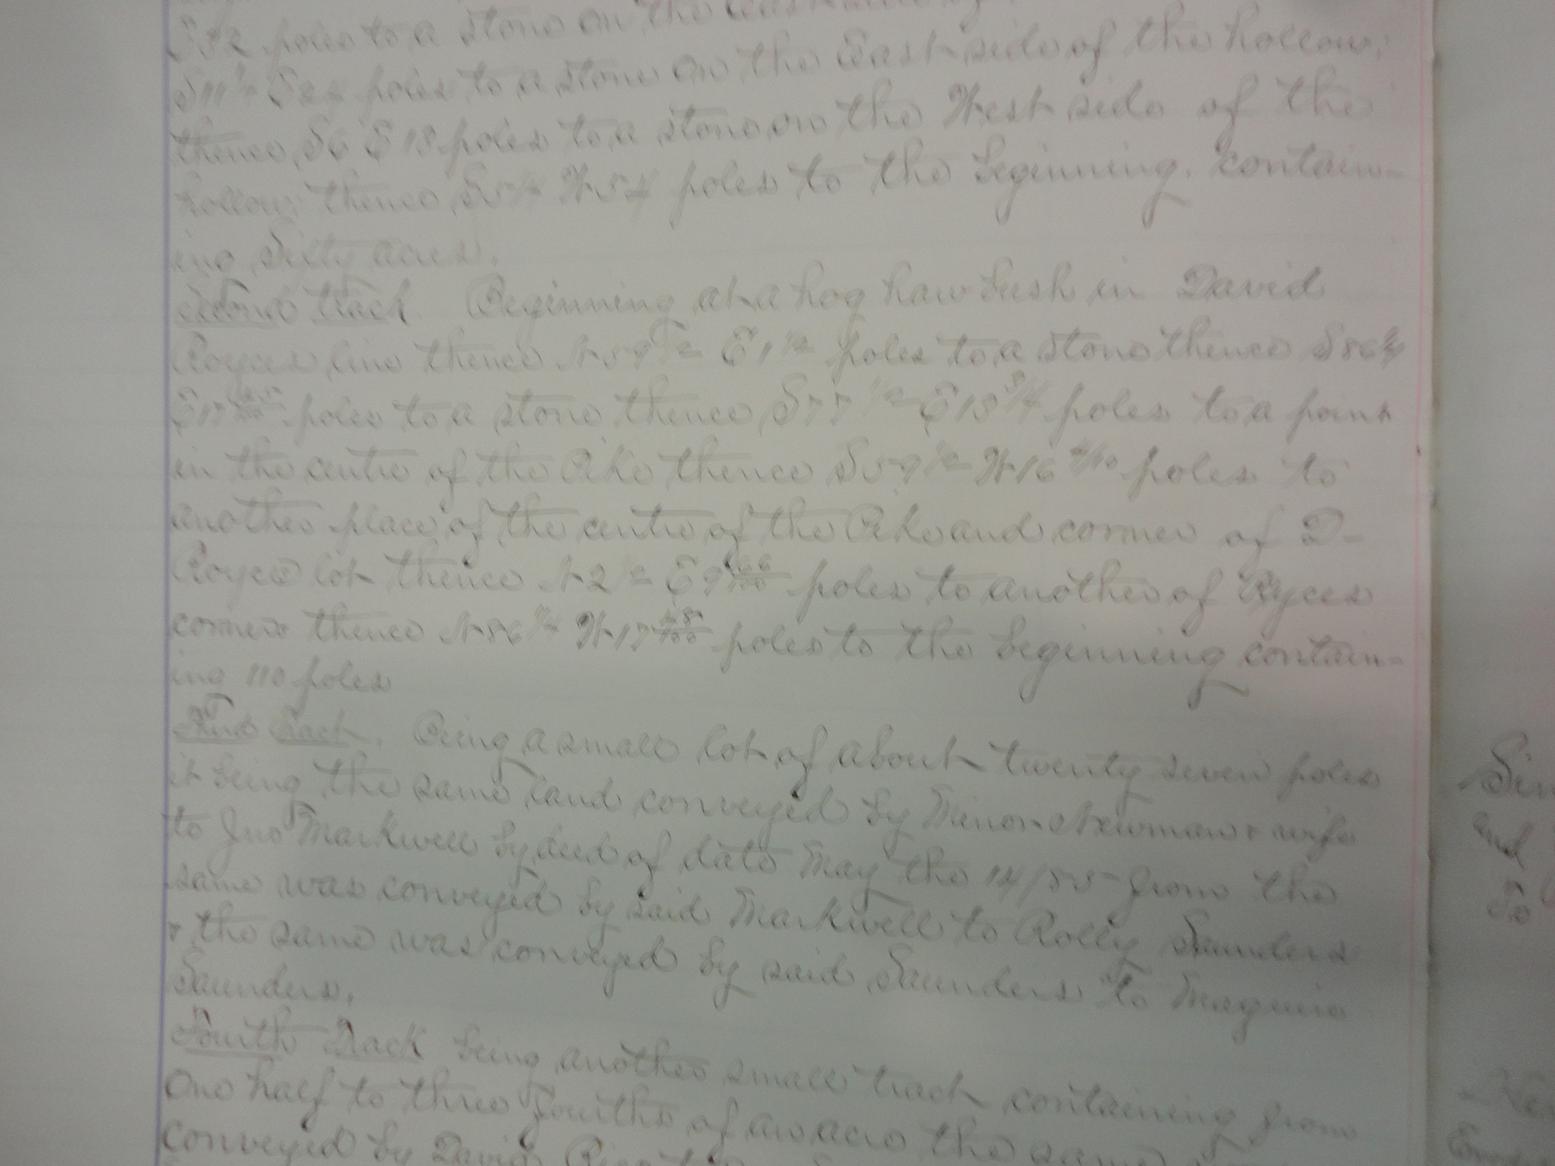 poles to a stone on the
poles to a stone on the East side of the hollow;
thence S6 E 18 poles to a stone on the West side of the
hollow; thence W 54 poles to the beginning. contain-
ing sixty acres.
Second track. Beginning at a hog haw bush in David
Royces line thence N 59 1/2 E 1 1/2 poles to a stone thence S 86 3/4
E 17 poles to a stone thence S 77 1/2 E 13 3/4 poles to a point
in the centre of the Pike thence S 59 1/2 W 16 poles to
another place of the centre of the Pike and corner of D-
Royces lot thence N 2 1/2 E 9 66/100 poles to another of Ryces
corners thence N 86 3/4 W 17 48/100 poles to the beginning contain-
ing 110 poles
track. Being a small lot of about twenty seven poles
it being the same land conveyed by Minor Newman & wife
to Jno Markwell by deed of date May the 14/85 from the
same was conveyed by said Markwell to Rolly Saunders
& the same was conveyed by said Saunders to
Saunders.
Fourth Track being another small track containing from
one half to three fourths of an acre the same
conveyed by David
and